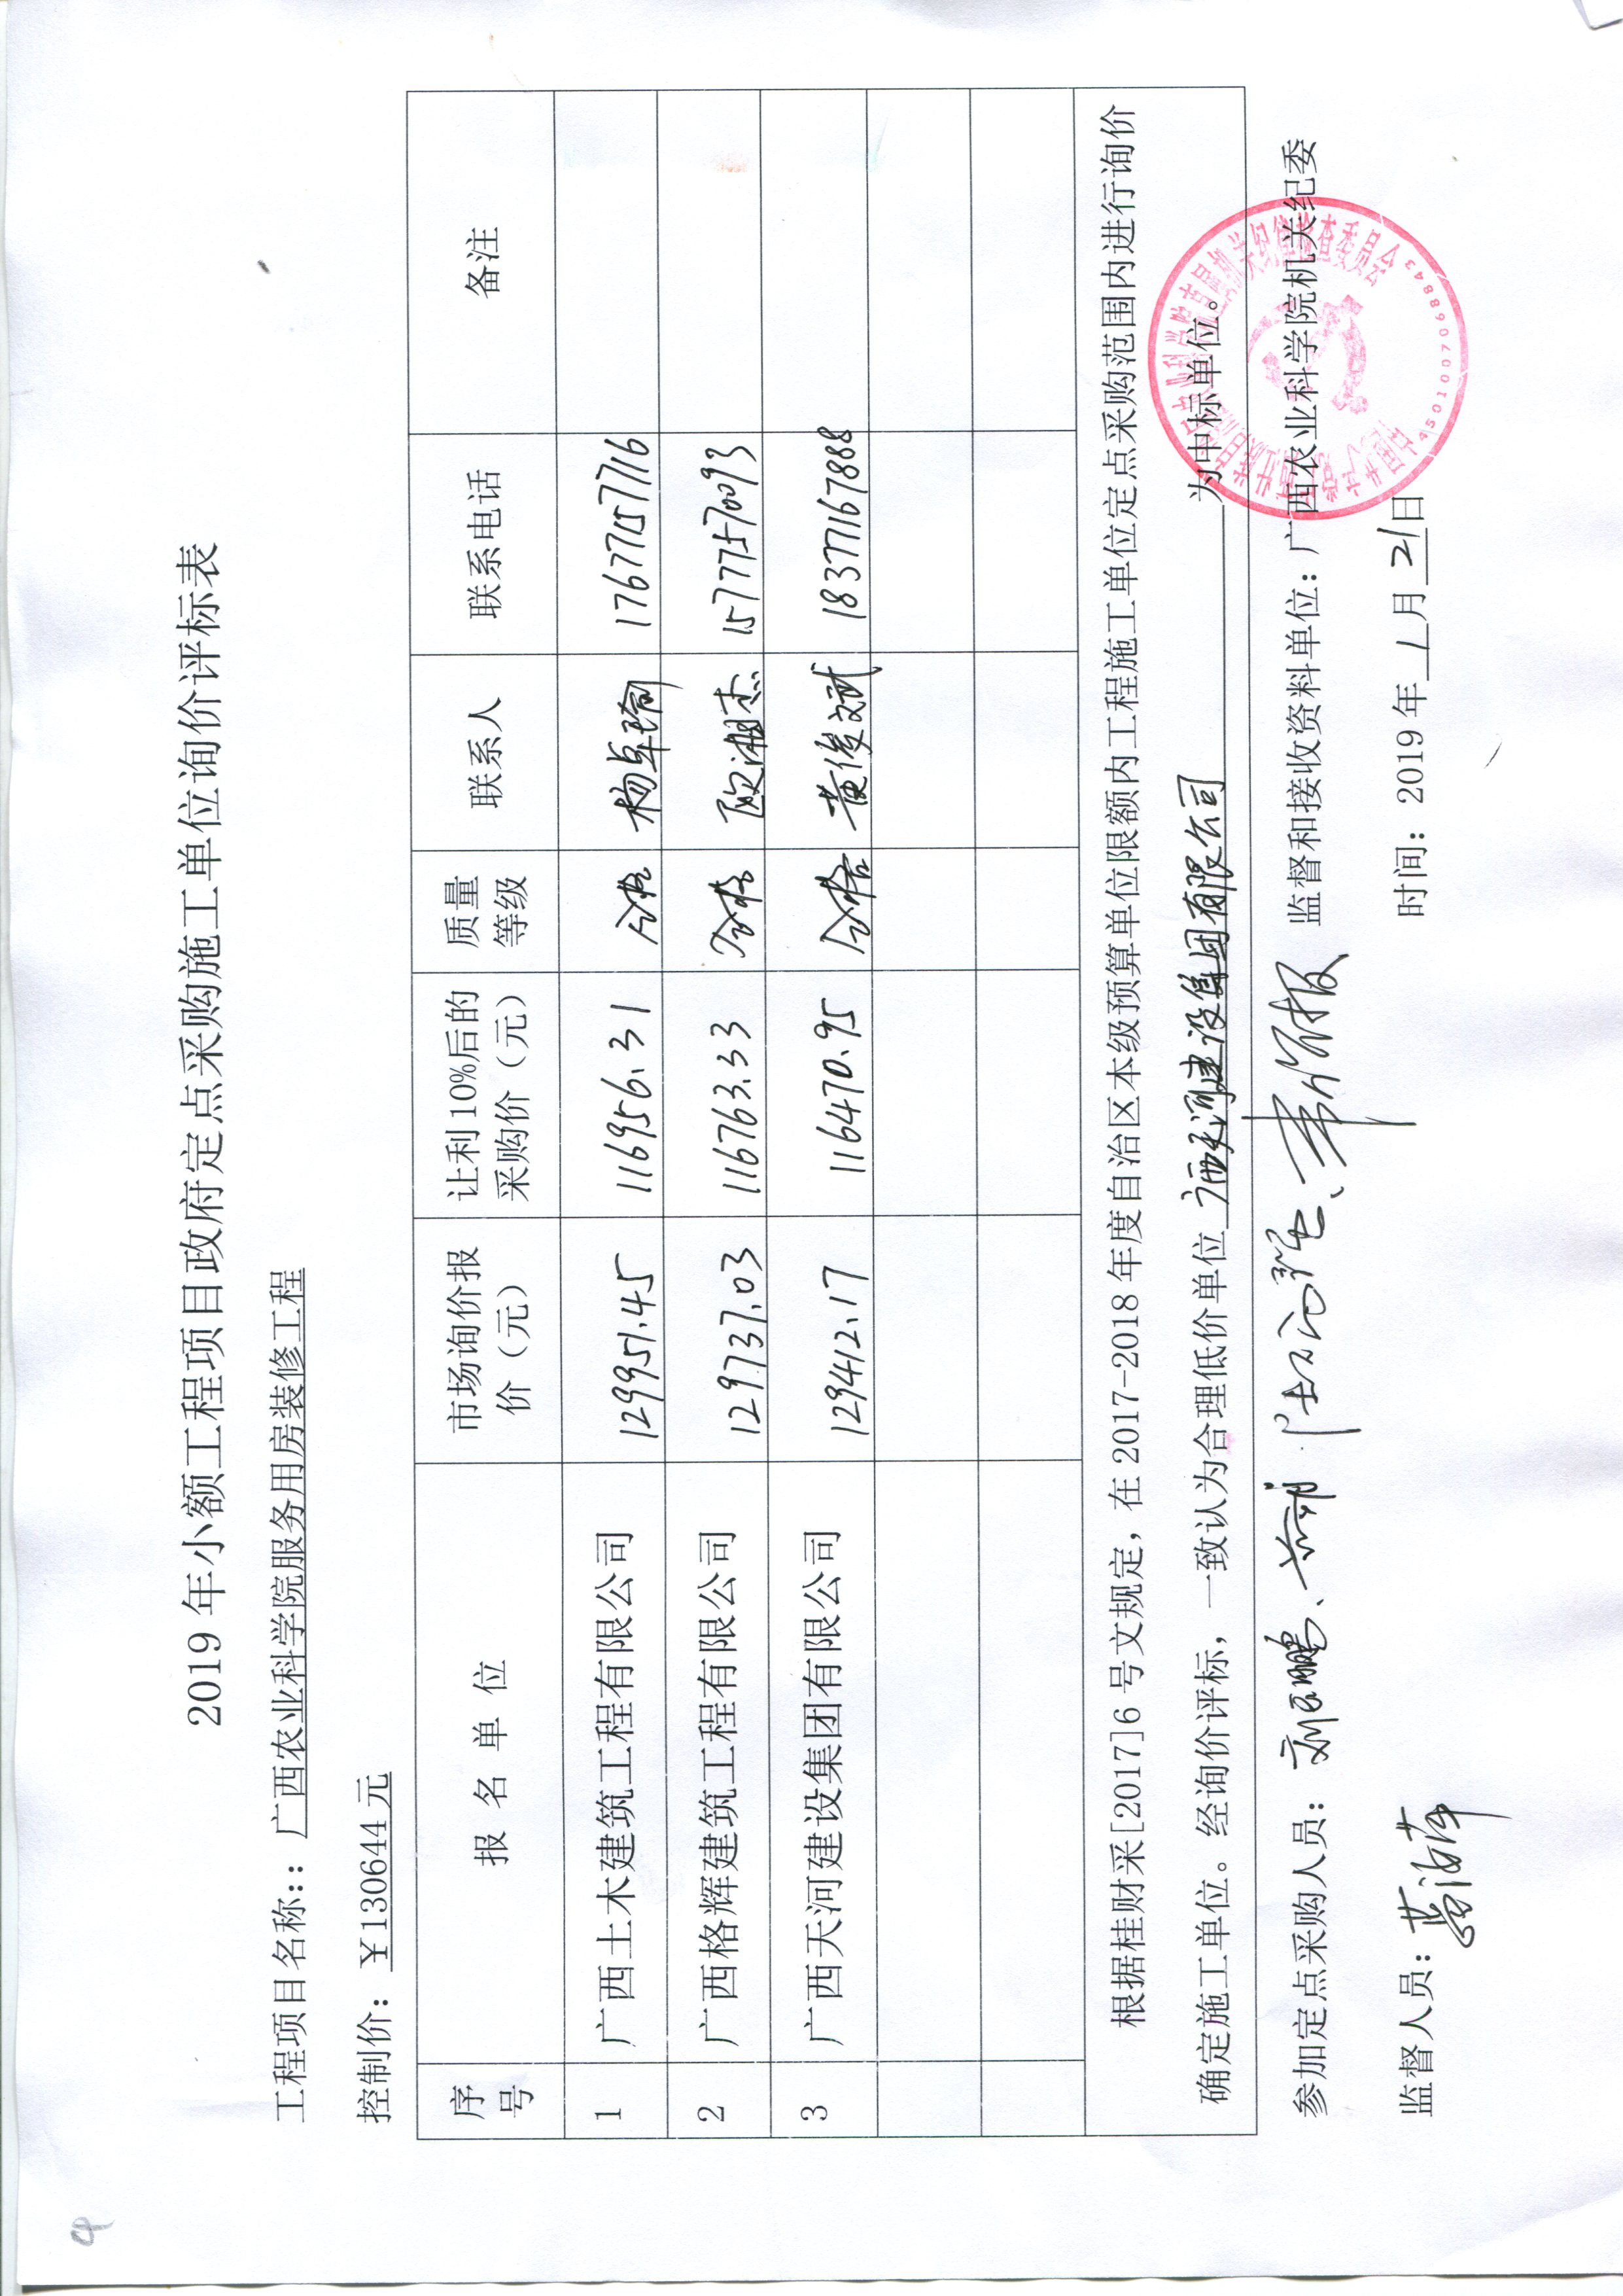 2019年小额工程项目政府定点采购施工单位询价评标表
工程项目名称：：广西农业科学院服务用房装修工程
控制价：￥130644元
序号 报名单位 市场询价报价（元） 让利10%后的采购价（元） 质量等级 联系人 联系电话 备注
1 广西土木建筑工程有限公司 129951.45 116956.31 合格 杨卓瑜 17677157716
2 广西格辉建筑工程有限公司 129737.03 116763.33 合格 欧湘杰 15777570093
3 广西天河建设集团有限公司 129412.17 116470.95 合格 黄俊斌 18377167888
根据桂财采[2017]6号文规定，在2017-2018年度自治区本级预算单位限额内工程施工单位定点采购范围内进行询价
确定施工单位。经询价评标，一致认为合理低价单位广西天河建设集团有限公司为中标单位。
参加定点采购人员： 监督和接收资料单位：广西农业科学院机关纪委
监督人员： 时间：2019年1月21日
4501007068843